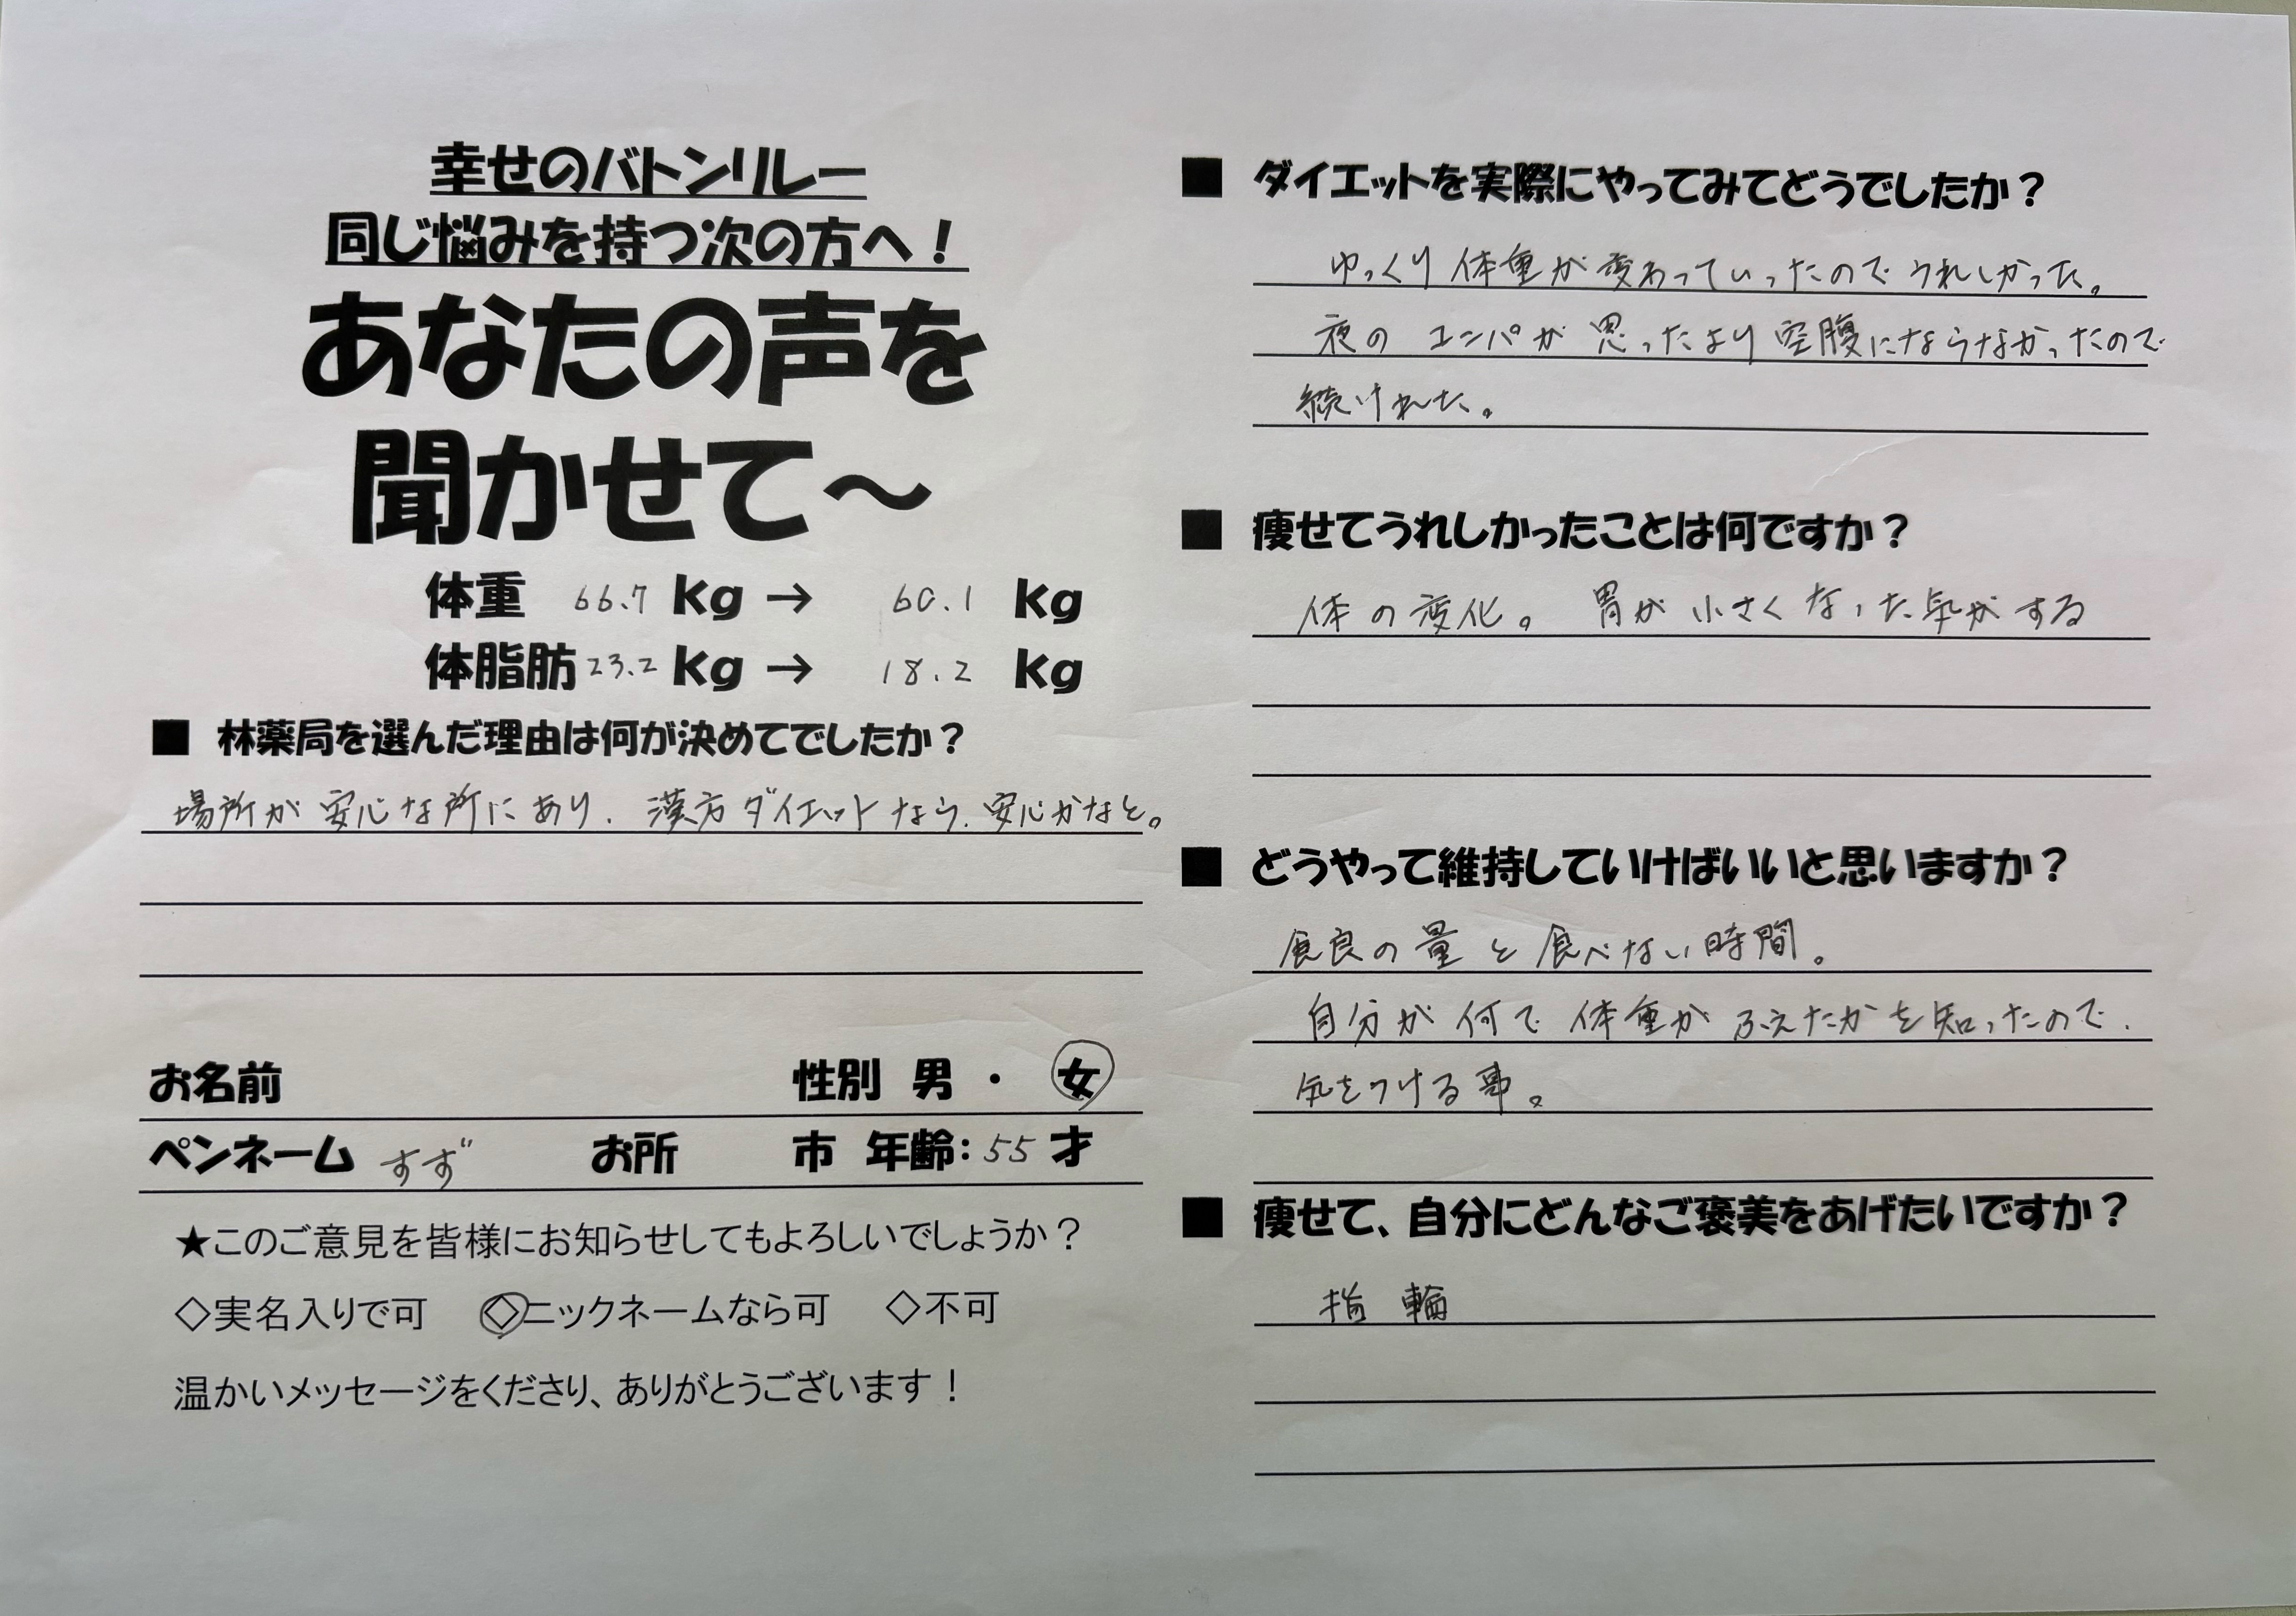 幸せのバトンリレー
同じ悩みを持つ次の方へ！
あなたの声を
聞かせて～
体重 66.7 kg → 60.1 kg
体脂肪 23.2 kg → 18.2 kg
■ 林薬局を選んだ理由は何が決めてでしたか？
場所が安心な所にあり、漢方ダイエットなら、安心かなと。
お名前 性別 男 ・ 女
ペンネーム すず お所 市 年齢：55 才
★このご意見を皆様にお知らせしてもよろしいでしょうか？
◇実名入りで可 ◇ニックネームなら可 ◇不可
温かいメッセージをくださり、ありがとうございます！
■ ダイエットを実際にやってみてどうでしたか？
ゆっくり体重が変わっていったのでうれしかった。
夜の コンパが 思ったより空腹にならなかったので
続けれた。
■ 痩せてうれしかったことは何ですか？
体の変化。 胃が小さくなった気がする
■ どうやって維持していけばいいと思いますか？
の量と食べない時間。
自分が何で体重がふえたかを知ったので、
気をつける事。
■ 痩せて、自分にどんなご褒美をあげたいですか？
指輪